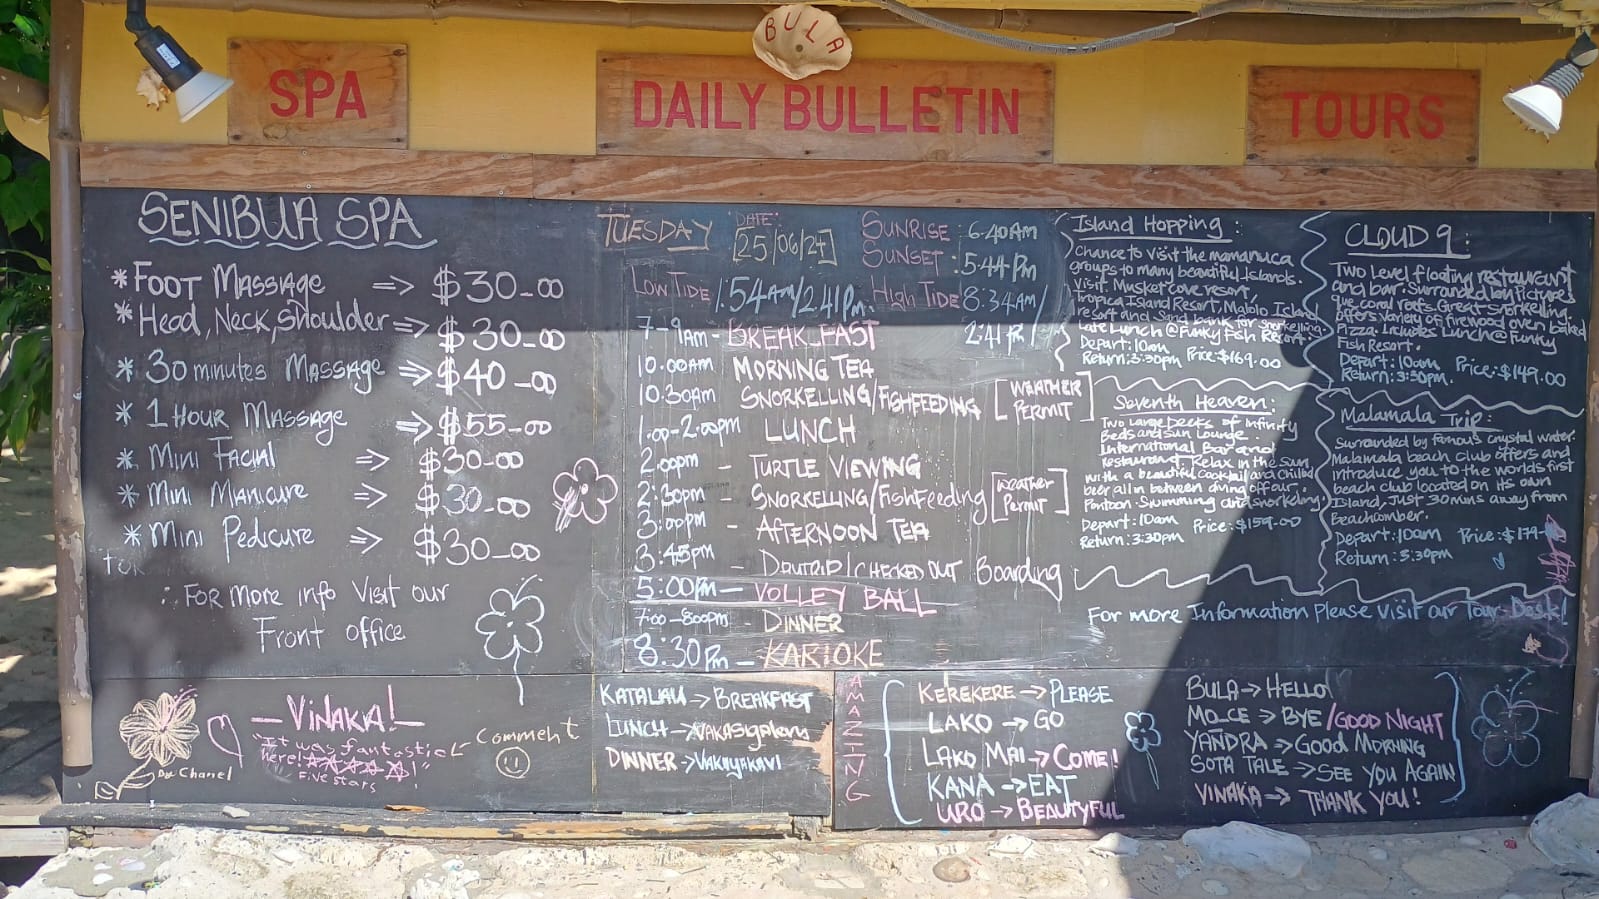 BULA
SPA
DAILY BULLETIN
TOURS
SENIBUA SPA
* FOOT MASSAGE => $30-00
* Head, Neck, Shoulder => $30-00
* 30 minutes MASSAGE => $40-00
* 1 HOUR MASSAGE => $55-00
* MINI FACIAL => $30-00
* MINI MANICURE => $30-00
* MINI PEDICURE => $30-00
FOR MORE info Visit our
Front office
TUESDAY DATE: [25/06/24]
SUNRISE : 6.40AM
SUNSET : 5:44 Pm
LOW TIDE 1.54AM/2.41Pm. HIGH TIDE 8:34AM/
2:41 Pm
7-9AM - BREAKFAST
10.00AM MORNING TEA
10.30AM SNORKELLING/FISHFEEDING [WEATHER PERMIT]
1.00-2.00pm LUNCH
2.00pm - TURTLE VIEWING
2:30pm - SNORKELLING/FishFeeding [Weather Permit]
3:00pm - AFTERNOON TEA
3:45pm - DAYTRIP/CHECKED OUT Boarding
5:00Pm - VOLLEY BALL
7:00-8:00pm - DINNER
8:30Pm - KARIOKE
Island Hopping :
Chance to visit the mamanuca
groups to many beautiful Islands.
Visit Musket cove resort,
Tropica Island Resort, Malolo Island
resort and Sand bank for Snorkelling.
Late Lunch @ Funky Fish Resort.
Depart: 10am
Return: 3:30pm Price: $169.00
Seventh Heaven:
Two Large Decks of Infinity
Beds and Sun Lounge.
International Bar and
restaurant Relax in the Sun
with a beautiful Cocktail and Chilled
beer all in between diving off our
Pontoon. Swimming and snorkeling.
Depart: 10am Price: $159-00
Return: 3:30pm
CLOUD 9 :
Two Level floating restaurant
and bar. Surranded by pictures
que coral reefs. Great Snorkelling.
offers variety of firewood oven baked
Pizza. Includes Lunch @ Funky
Fish Resort.
Depart: 10am Price: $149.00
Return: 3:30pm.
Malamala Trip:
Surrounded by famous crystal water.
Malamala beach club offers and
introduce you to the worlds first
beach club located on its own
Island, Just 30mins away from
Beachcomber.
Depart: 10am Price: $179-
Return: 3:30pm
For more Information Please Visit our Tour Desk!
— VINAKA! —
"It was fantastic
here!
FIVE stars
Comment
Chanel
KATALAU -> BREAKFAST
LUNCH -> VAKASIGALEVU
DINNER -> VAKAYAKAVI
AMAZING
KEREKERE -> PLEASE
LAKO -> GO
LAKO MAI -> COME!
KANA -> EAT
URO -> BEAUTYFUL
BULA -> HELLO
MO_CE -> BYE/GOOD NIGHT
YANDRA -> GOOD MORNING
SOTA TALE -> SEE YOU AGAIN
VINAKA -> THANK YOU!